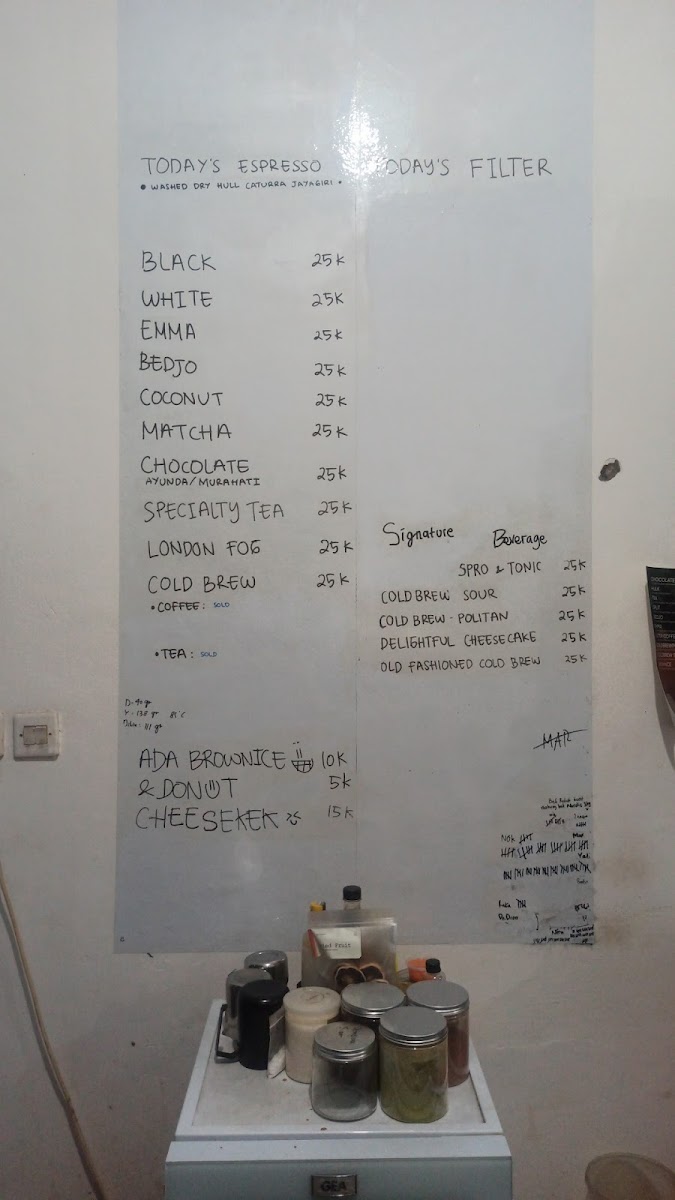 TODAY'S ESPRESSO
• WASHED DRY HULL CATURRA JAYAGIRI •
BLACK 25K
WHITE 25K
EMMA 25K
BEDJO 25K
COCONUT 25K
MATCHA 25K
CHOCOLATE 25K
AYUNDA/MURAHATI
SPECIALTY TEA 25K
LONDON FOG 25K
COLD BREW 25K
• COFFEE: SOLD
• TEA: SOLD
85°C
ADA BROWNICE 10K
& DONUT 5K
CHEESEKEK 15K
TODAY'S FILTER
Signature Beverage
SPRO & TONIC 25K
COLD BREW SOUR 25K
COLD BREW - POLITAN 25K
DELIGHTFUL CHEESECAKE 25K
OLD FASHIONED COLD BREW 25K
CHOCOLATE
Fruit
GEA